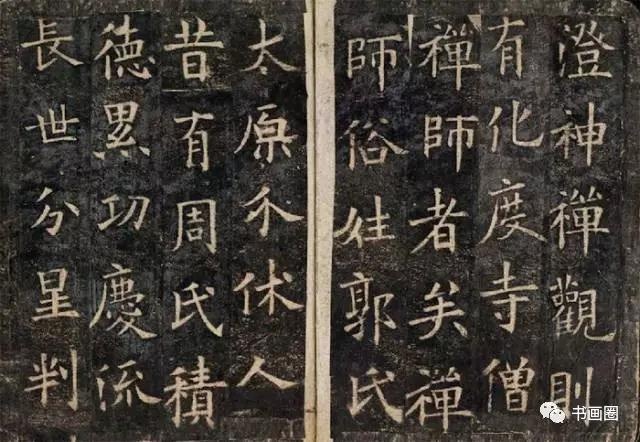 澄神禪觀則
有化度寺僧
禪師者矣禪
師俗姓郭氏
太原介休人
昔有周氏積
德累功慶流
長世分星判
书画圈